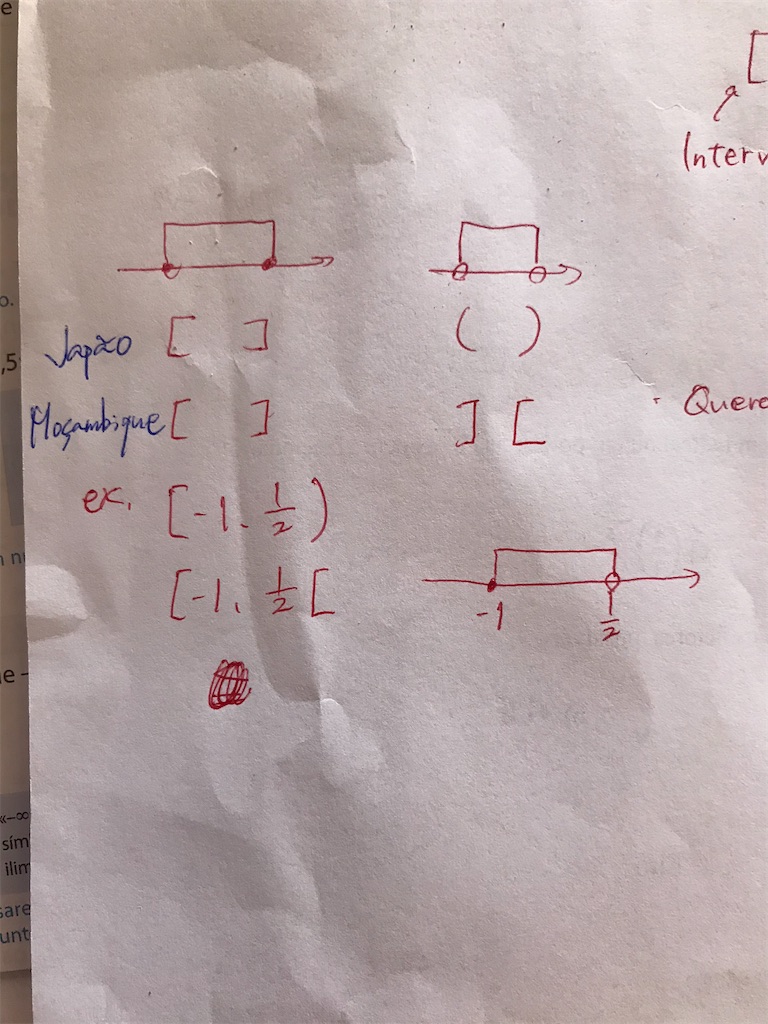 [
Interv
Japão [ ] ( )
Moçambique [ ] ] [
· Quere
ex. [-1. 1/2)
[-1. 1/2 [
-1 1/2